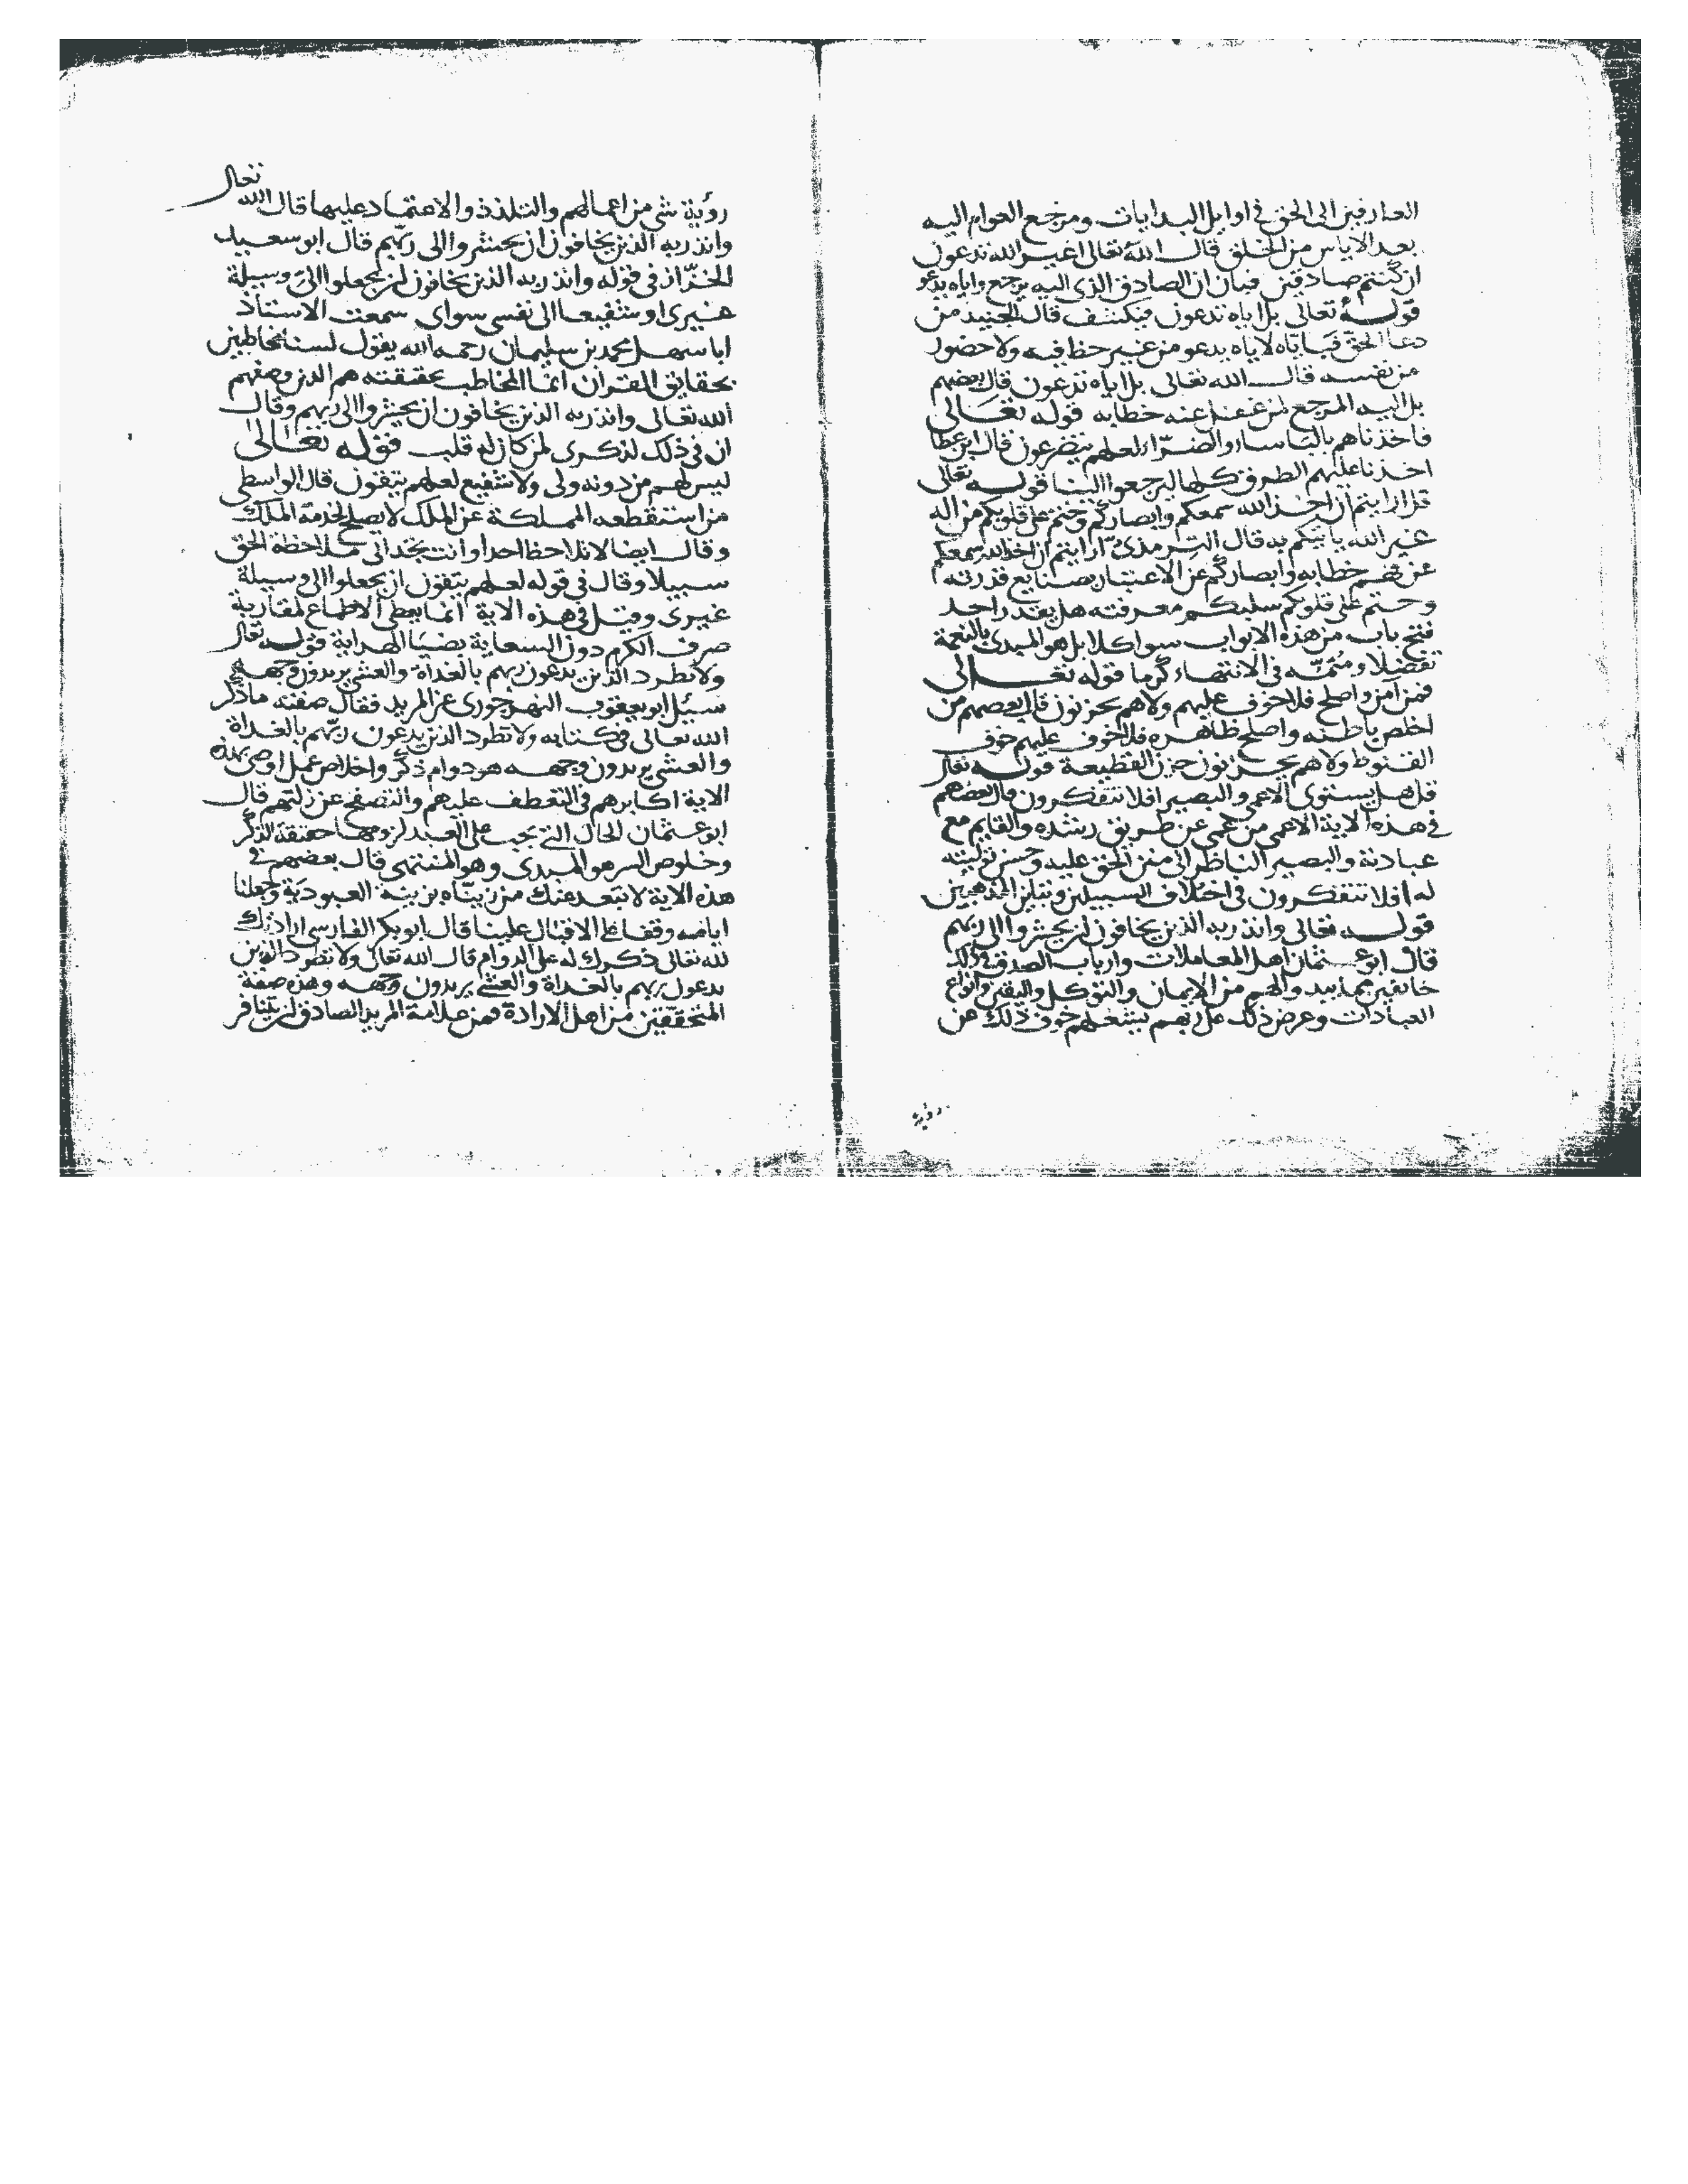 العارفين الى الحق في اوايل البدايات ومرجع العوام اليه
بعد الاياس من الخلق قال الله تعالى اغير الله تدعون
ان كنتم صادقين فبان ان الصادق الذى اليه يرجع واياه يدعو
قوله تعالى بل اياه تدعون فيكشف قال الجنيد من
دعا الحق فباياه لاياه يدعو من غير حظ فيه ولا حضور
من نفسه قال الله تعالى بل اياه تدعون قال بعضهم
بل اليه المرجع لمن غفل عنه خطابه قوله تعالى
فاخذناهم بالباساء والضراء لعلهم يتضرعون قال ابن عطا
اخذنا عليهم الطرق كلها ليرجعوا الينا قوله تعالى
قل ارايتم ان اخذ الله سمعكم وابصاركم وختم على قلوبكم من اله
غير الله ياتيكم به قال الترمذى ارايتم ان اخذ الله سمعكم
عن فهم خطابه وابصاركم عن الاعتبار بصنايع قدرته
وختم على قلوبكم سلبكم معرفته هل يقدر احد
فتح باب من هذه الابواب سواه كلا بل هو المبدى بالنعمة
تفضلا ومتمه في الانتهاء كرما قوله تعالى
فمن آمن واصلح فلا خوف عليهم ولا هم يحزنون قال بعضهم من
اخلص باطنه واصلح ظاهره فلا خوف عليهم خوف
القنوط ولا هم يحزنون حزن القطيعة قوله تعالى
قل هل يستوى الاعمى والبصير افلا تتفكرون قال بعضهم
في هذه الاية الاعمى من عمى عن طريق رشده والقايم مع
عبادته والبصير الناظر الى منن الحق عليه وحسن توليته
له افلا تتفكرون في اختلاف السبيلين وتباين المذهبين
قوله تعالى وانذر به الذين يخافون ان يحشروا الى ربهم
قال ابو عثمان اهل المعاملات وارباب الصدق في ذلك
خايفين من الايمان والتوكل واليقين وانواع
العبادات وعرض ذلك على ربهم يشغلهم خوف ذلك عن
رؤية
رؤية شى من اعمالهم والتلذذ والاعتماد عليها قال الله تعالى
وانذر به الذين يخافون ان يحشروا الى ربهم قال ابو سعيد
الخراز في قوله وانذر به الذين يخافون ان يجعلوا الى وسيلة
غيرى او شفيعا الى نفسى سواى سمعت الاستاذ
ابا سهل محمد بن سليمان رحمه الله يقول لسنا مخاطبين
بحقايق القران انما المخاطب بحقيقته هم الذين وصفهم
الله تعالى وانذر به الذين يخافون ان يحشروا الى ربهم وقال
ان في ذلك لذكرى لمن كان له قلب قوله تعالى
ليس لهم من دونه ولى ولا شفيع لعلهم يتقون قال الواسطى
من استقطعه المملكة عن الملك لا يصلح لخدمة الملك
وقال ايضا لا تلاحظ احدا وانت تجد الى ملاحظة الحق
سبيلا وقال في قوله لعلهم يتقون ان يجعلوا الى وسيلة
غيرى وقيل في هذه الاية انما يعطى الاطماع لمقاربة
صرف الكرم دون السعاية بضيا الهداية قوله تعالى
ولا تطرد الذين يدعون ربهم بالغداة والعشى يريدون وجهه
سئل ابو يعقوب النهرجورى عن المريد فقال صفته ما ذكر
الله تعالى في كتابه ولا تطرد الذين يدعون ربهم بالغداة
والعشى يريدون وجهه هو دوام ذكر واخلاص عمل اوصى بهذه
الاية اكابرهم في التعطف عليهم والتصفح عن زلتهم قال
ابو عثمان الحال التى يجب على العبد لزومها حقيقة الذكر
وخلوص السر هو المبدى وهو المنتهى قال بعضهم في
هذه الاية لا تبعد عنك من زيناه بزينة العبودية وجعلنا
ايامه وقفا على الاقبال علينا قال ابو بكر الفارسى ارادتك
لله تعالى ذكرك له على الدوام قال الله تعالى ولا تطرد الذين
يدعون ربهم بالغداة والعشى يريدون وجهه وهذه صفة
المتحققين من اهل الارادة فمن علامة المريد الصادق ان يتنافر